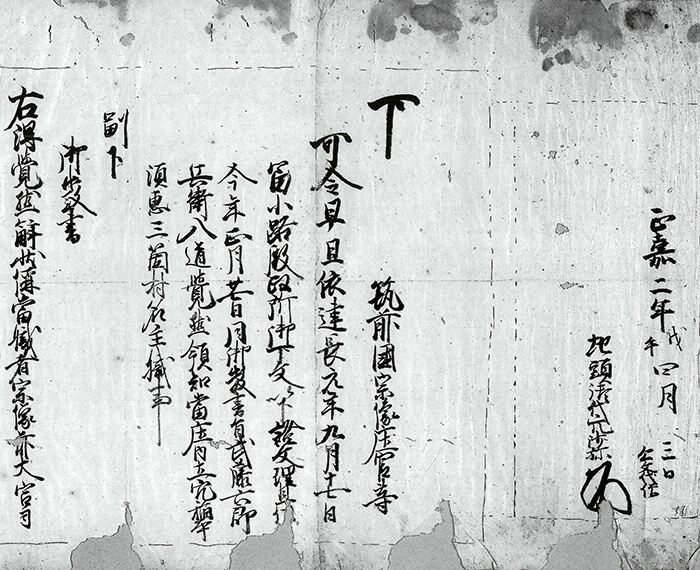 正嘉二年戊午四月三日
地頭代沙弥
下 筑前國宗像庄官等
可令早且依建長元年九月十七日
冨小路殿政所御下文以下證文理且任
今年正月廿日同御教書旨武藤六郎
兵衛入道覺然領知當庄内立荒稲本
須恵三箇村名主軄事
副下
御教書
右得覺然解状偁當軄者宗像前大宮司